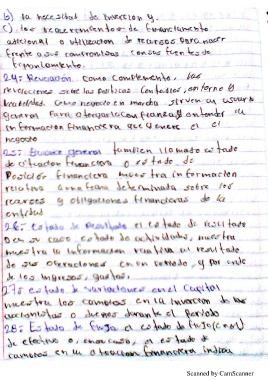 b) la necesitat de Inversion y.
c) los requerimientos de financiamiento
adicional o utilizacion de recursos para hacer
frente a sus compromisos con sus fuentes de
financiamiento.
24: Revelacion como complemento, las
revelaciones sobre las politicas contables, entorno y
como negocio en marcha sirven al usuario
general para otorgarle confianza y entender la
informacion financiera que genere el
negocio
25: Balance general tambien llamado estado
de situacion financiera o estado de
Posición financiera muestra informacion
relativa a una fecha determinada sobre los
recursos y obligaciones financieras de la
entidad
26: Estado de Resultado el estado de resultado
o en su caso, estado de actividades, muestra
la informacion relativa al resultado
de sus operaciones en un periodo, y por ende
de los ingresos, gastos,
27: estado de variaciones en el Capital
muestra los cambios en la inversion de los
accionistas o dueños durante el periodo
28: Estado de flujo el estado de flujo
de efectivo o, en su caso, el estado de
cambios en la situacion financiera indica
Scanned by CamScanner